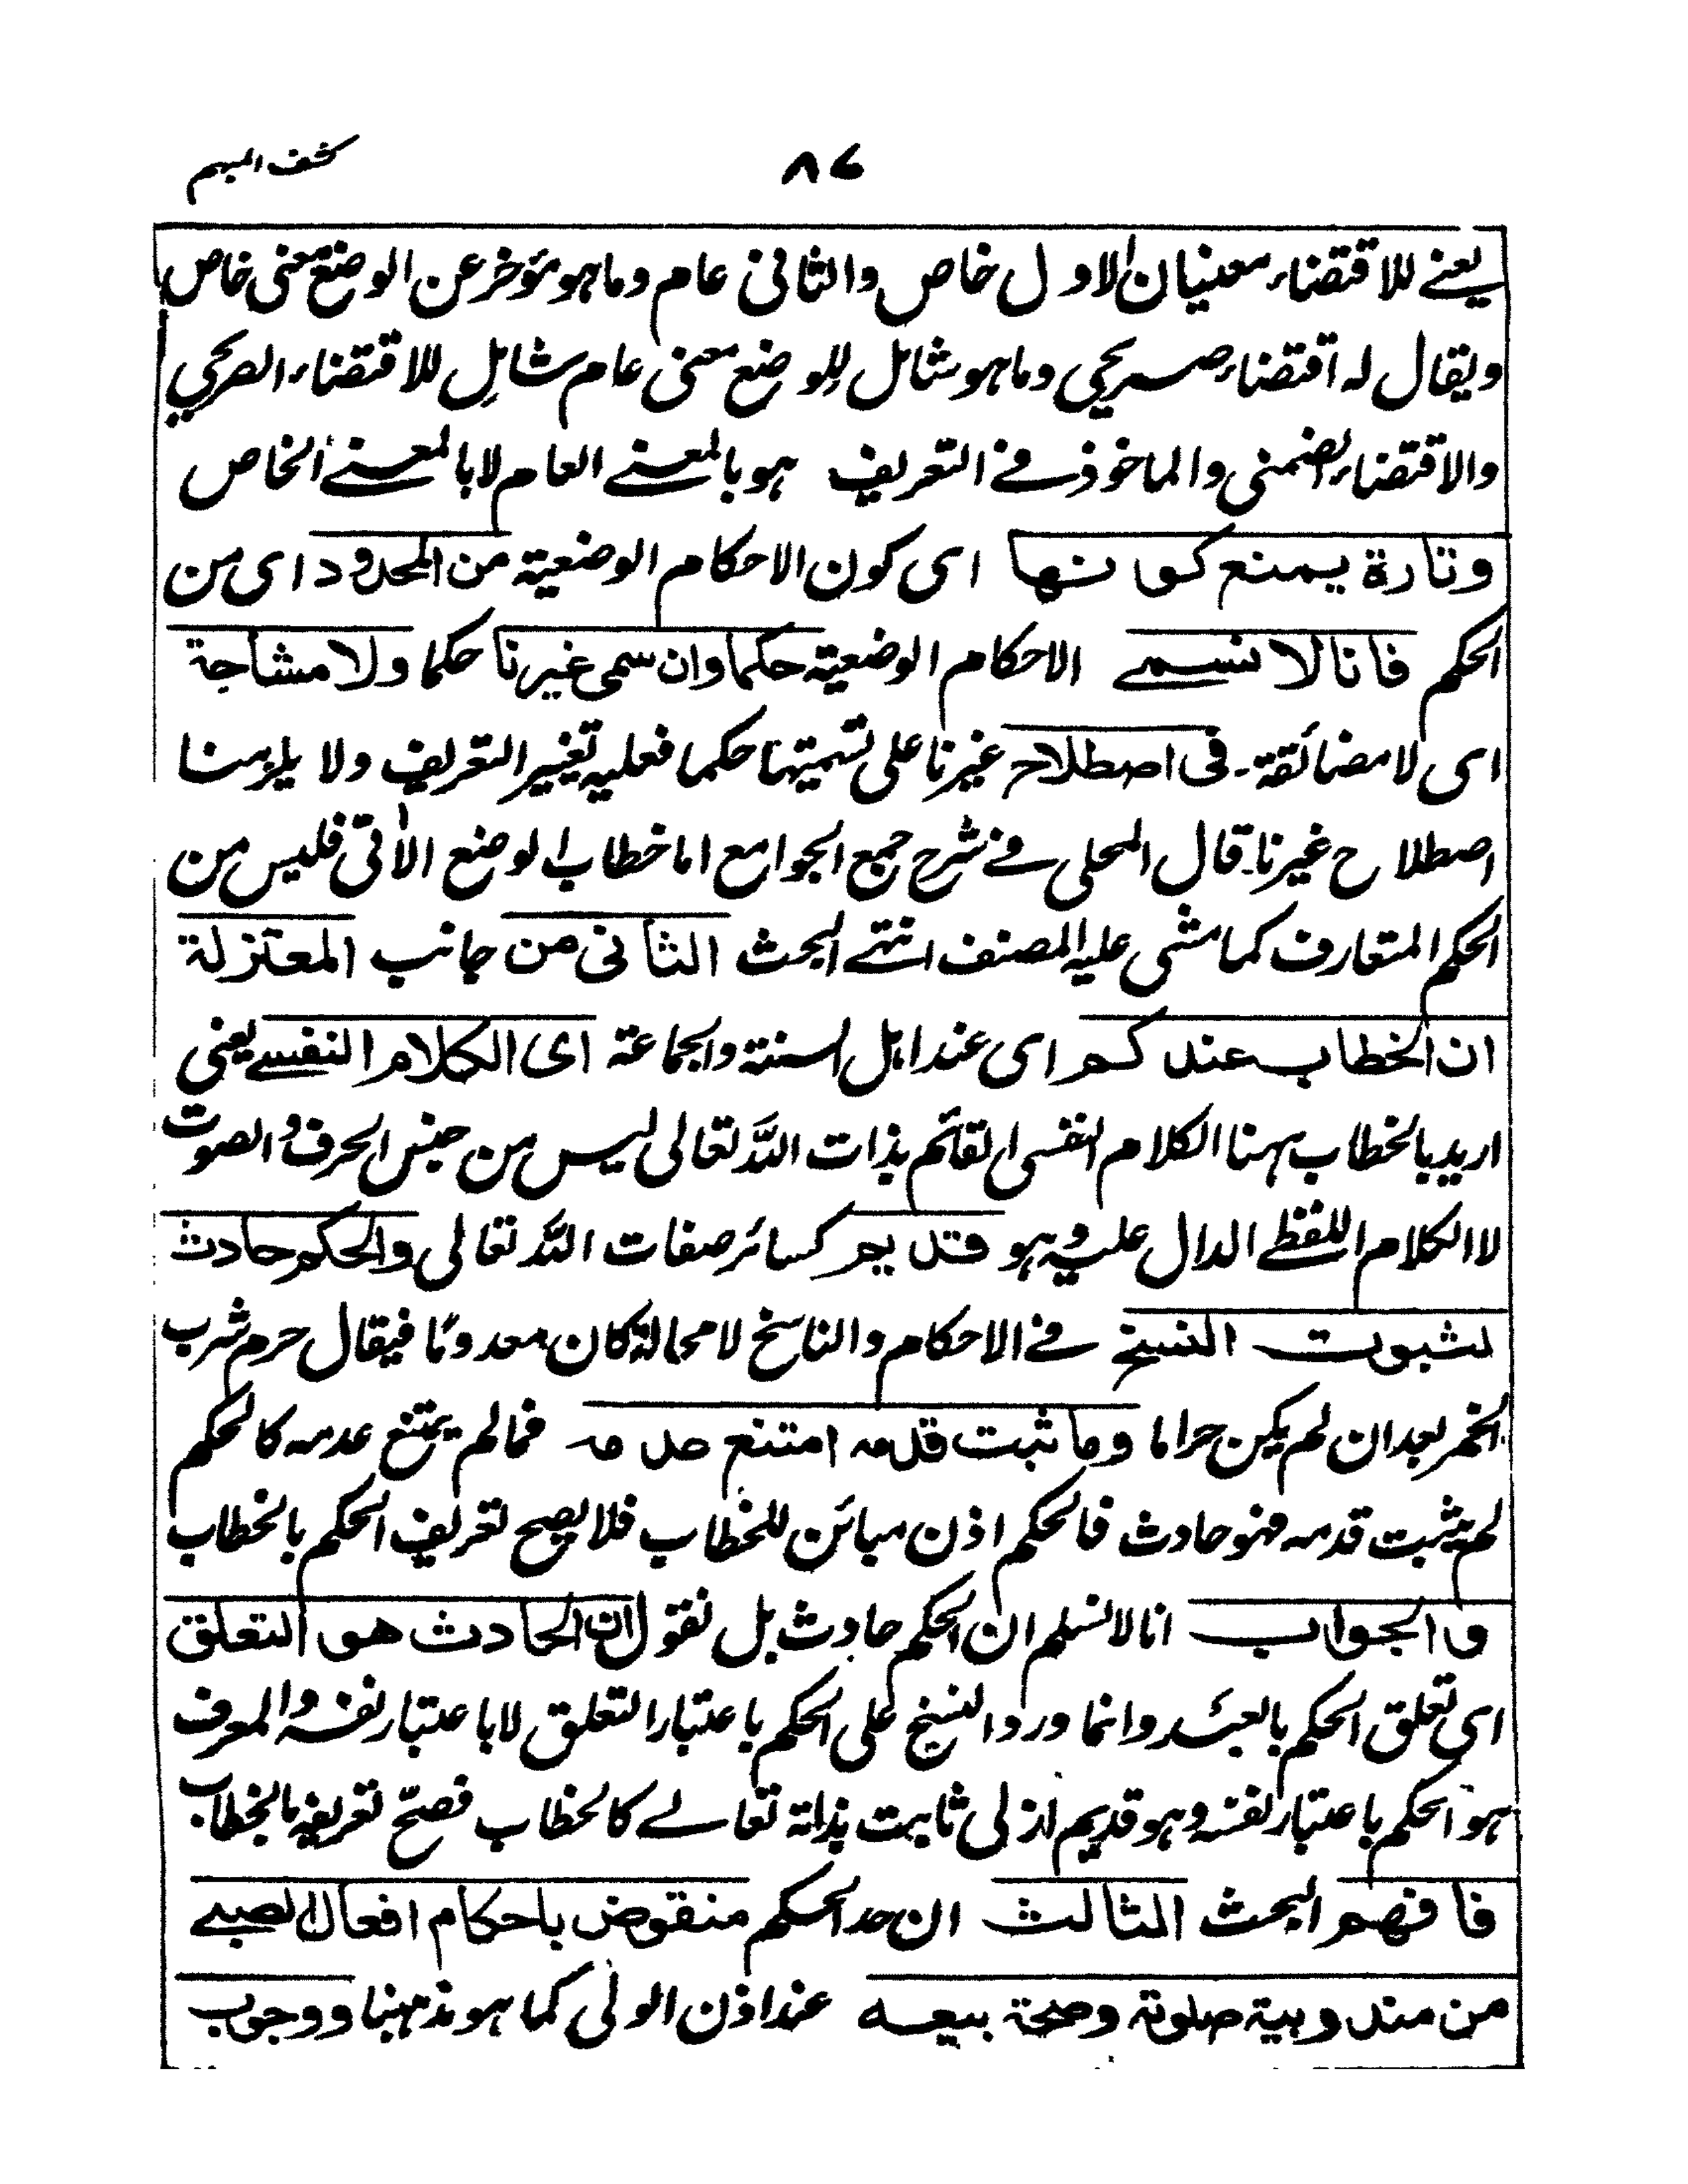 كشف المبهم
٨٧
يعنے للاقتضاء معنيان الاول خاص والثانی عام وما هو مؤخر عن الوضع معنی خاص
ويقال له اقتضاء صريحي وما هو شامل للوضع معنی عام شامل للاقتضاء الصريحي
والاقتضاء الضمنی والماخوذ فے التعريف هو بالمعنے العام لا بالمعنے الخاص
وتارة يمنع كونها ای كون الاحكام الوضعية من المحدود ای من
الحكم فانا لا نسمے الاحكام الوضعية حكما وان سمی غيرنا حكما ولا مشاحة
ای لا مضائقة۔ فی اصطلاح غيرنا علی تسميتها حكما فعليه تغيير التعريف ولا يلزمنا
اصطلاح غيرنا۔ قال المحلی فے شرح جمع الجوامع اما خطاب الوضع الاٰتی فليس من
الحكم المتعارف كما مشی عليه المصنف انتهے البحث الثانی من جانب المعتزلة
ان الخطاب عندكم ای عند اهل السنة والجماعة ای الكلام النفسے يعنی
اريد بالخطاب ههنا الكلام النفسی القائم بذات الله تعالی ليس من جنس الحرف والصوت
لا الكلام اللفظے الدال عليه وهو قديم كسائر صفات الله تعالی والحكم حادث
لثبوت النسخ فے الاحكام والناسخ لا محالة كان معدوما فيقال حرم شرب
الخمر بعد ان لم يكن حراما وما ثبت قدمه امتنع عدمه فما لم يمتنع عدمه كالحكم
لم يثبت قدمه فهو حادث فالحكم اذن مبائن للخطاب فلا يصح تعريف الحكم بالخطاب
والجواب انا لا نسلم ان الحكم حادث بل نقول ان الحادث هو التعلق
ای تعلق الحكم بالعبد وانما ورد النسخ علی الحكم باعتبار التعلق لا باعتبار نفسه والمعرف
هو الحكم باعتبار نفسه وهو قديم ازلی ثابت بذاته تعالے كالخطاب فصحّ تعريفه بالخطاب
فافهم البحث الثالث ان حد الحكم منقوض باحكام افعال الصبے
من مندوبية صلوته وصحة بيعه عند اذن الولی كما هو مذهبنا ووجوب